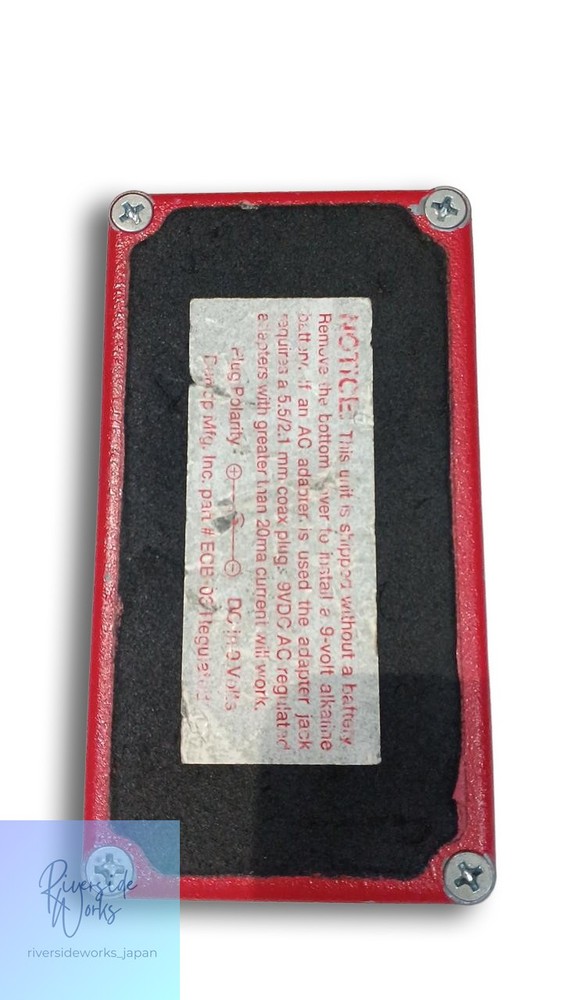 NOTICE: This unit is shipped without a battery.
Remove the bottom cover to install a 9-volt alkaline
battery. If an AC adapter is used the adapter jack
requires a 5.5/2.1 mm coax plug. 9VDC AC regulated
adapters with greater than 20ma current will work.
Plug Polarity: DC in 9 Volts
Dunlop Mfg. Inc. part # Regulated
Riverside
Works
riversideworks_japan